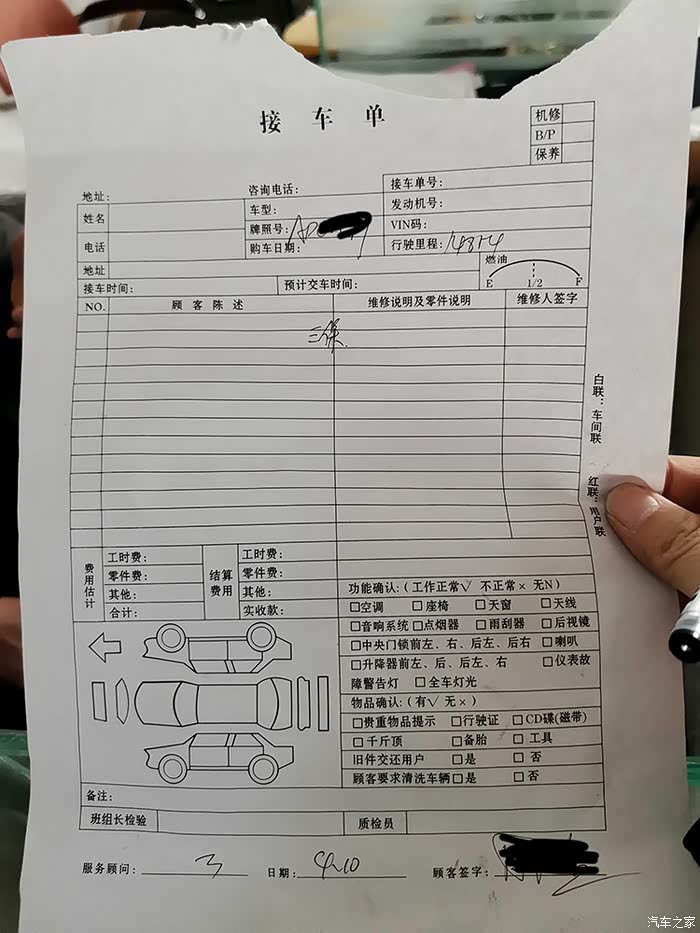 接车单
机修
B/P
保养
地址: 咨询电话: 接车单号:
姓名 车型: 发动机号:
牌照号: VIN码:
电话 购车日期: 行驶里程:
地址 燃油
接车时间: 预计交车时间: E 1/2 F
NO. 顾客陈述 维修说明及零件说明 维修人签字
三保
白联:车间联
红联:用户联
费用估计 工时费: 结算费用 工时费:
零件费: 零件费:
其他: 其他:
合计: 实收款:
功能确认:(工作正常√ 不正常× 无N)
□空调 □座椅 □天窗 □天线
□音响系统 □点烟器 □雨刮器 □后视镜
□中央门锁前左、右、后左、后右 □喇叭
□升降器前左、后、后左、右 □仪表故
障警告灯 □全车灯光
物品确认:(有√ 无×)
□贵重物品提示 □行驶证 □CD碟(磁带)
□千斤顶 □备胎 □工具
旧件交还用户 □是 □否
顾客要求清洗车辆 □是 □否
备注:
班组长检验 质检员
服务顾问: 日期: 顾客签字:
汽车之家